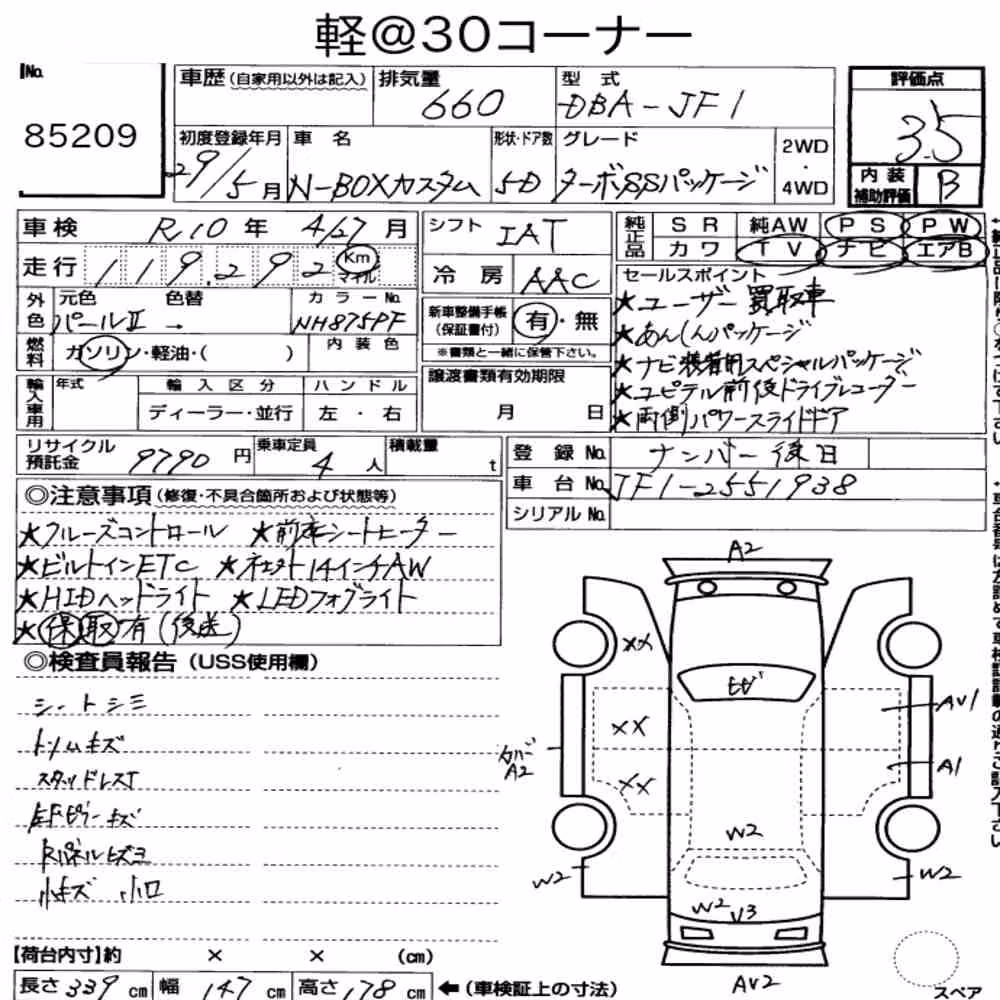 軽@30コーナー
No. 85209
車歴(自家用以外は記入) 排気量 660 型式 DBA-JF1
初度登録年月 29/5月 車名 N-BOXカスタム 形状・ドア数 5D グレード ターボSSパッケージ 2WD・4WD
評価点 3.5
内装補助評価 B
車検 R.10年 4/27月
走行 119,292 Km マイル
外色 元色 パールII 色替 → カラーNo. NH875PF
燃料 ガソリン・軽油・( ) 内装色
輸入車用 年式 輸入区分 ディーラー・並行 ハンドル 左・右
シフト IAT
冷房 AAC
新車整備手帳(保証書付) 有・無
※書類と一緒に保管下さい。
譲渡書類有効期限
月 日
純正品 SR 純AW PS PW
カワ TV ナビ エアB
セールスポイント
★ユーザー買取車
★あんしんパッケージ
★ナビ装着用スペシャルパッケージ
★ユピテル前後ドライブレコーダー
★両側パワースライドドア
リサイクル預託金 9790円 乗車定員 4人 積載量 t
登録No. ナンバー後日
車台No. JF1-2551938
シリアルNo.
◎注意事項(修復・不具合箇所および状態等)
★クルーズコントロール ★前席シートヒーター
★ビルトインETC ★社外14インチAW
★HIDヘッドライト ★LEDフォグライト
★保取有(後送)
◎検査員報告(USS使用欄)
シートシミ
トリムキズ
スタッドレスT
左Fピラーキズ
Rパネルヒズミ
小キズ 小凹
A2
XX
ヒビ
XX
AV1
カバー
A2
A1
XX
W2
W2
W2
W2 U3
AV2
スペア
【荷台内寸】約 × × (cm)
長さ 339cm 幅 147cm 高さ 178cm ←(車検証上の寸法)